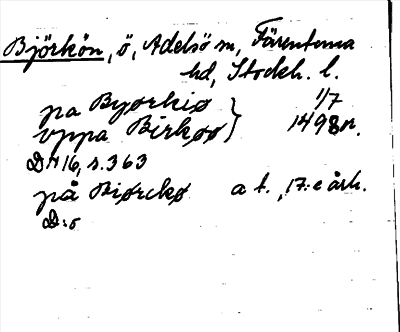 Björkön, ö, Adelsö sn, Färentuna
hd, Stockh. l.
pa Byørkiø } 1/7
vppa Birkøø } 1498 n.
D 116, s. 363
på Biørckø a t., 17:e årh.
D:o